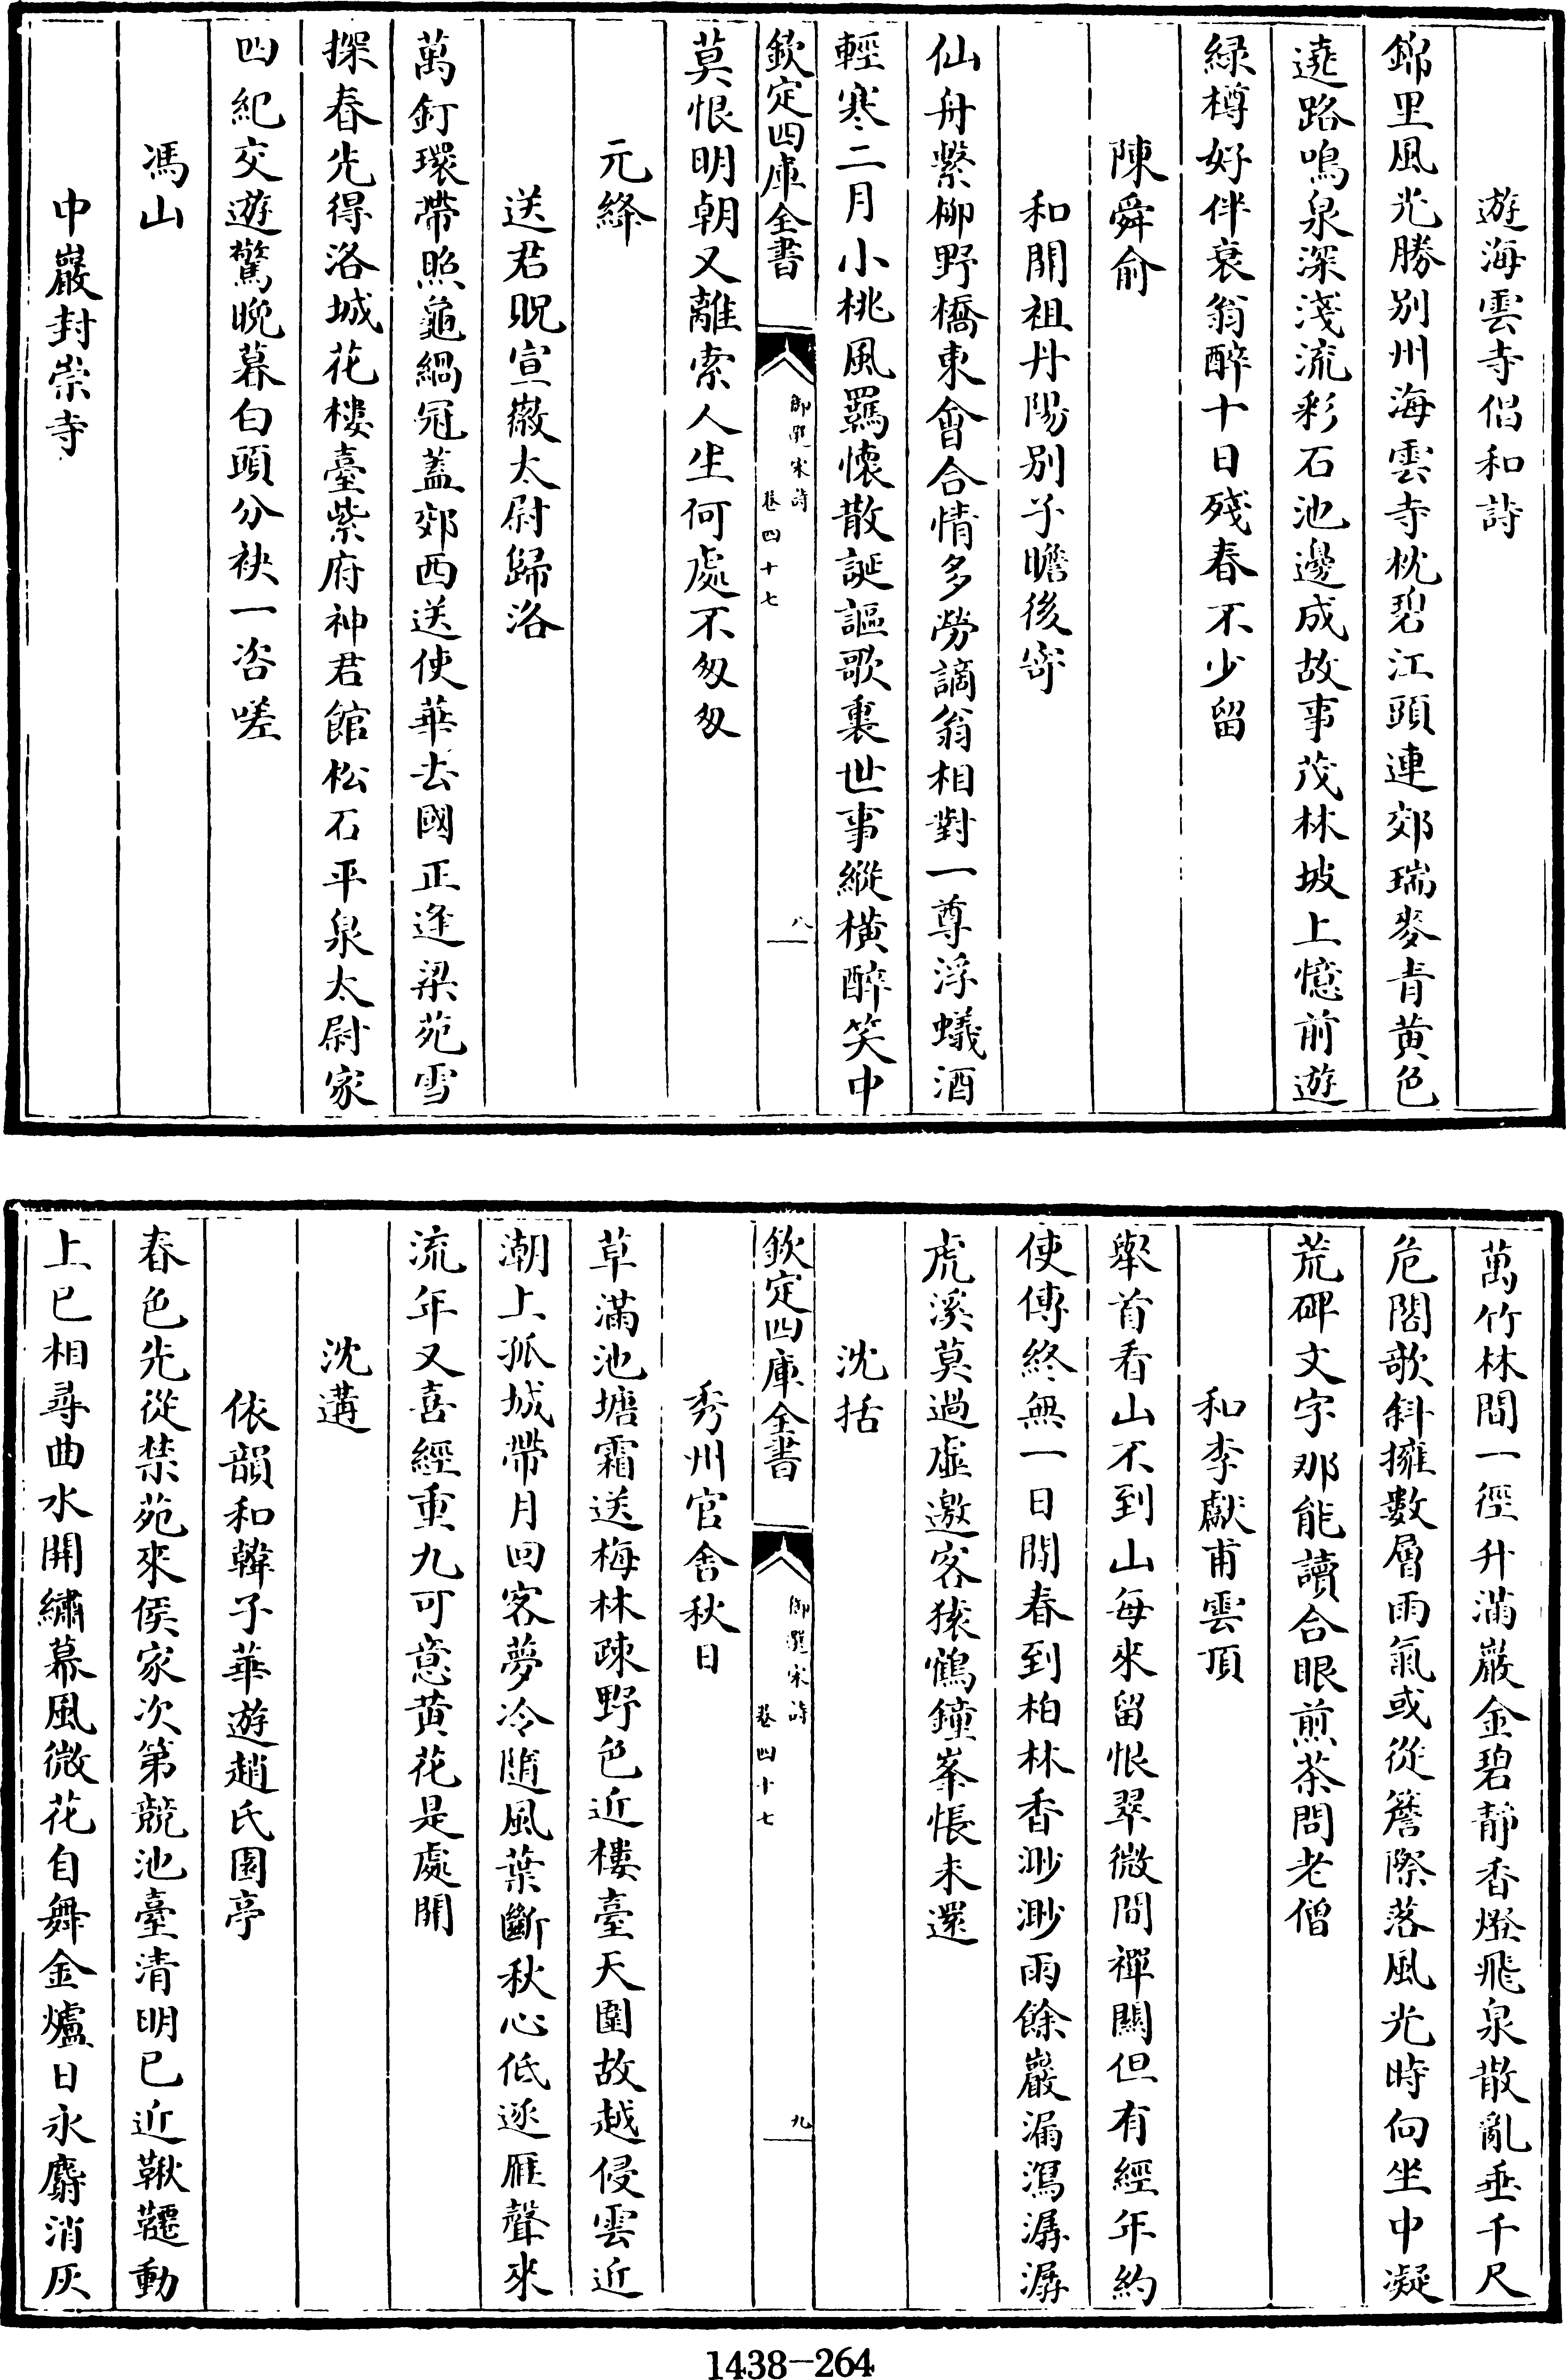 遊海雲寺倡和詩
錦里風光勝別州海雲寺枕碧江頭連郊瑞麥青黄色
遶路鳴泉深淺流彩石池邊成故事茂林坡上憶前遊
緑樽好伴衰翁醉十日殘春不少留
陳舜俞
和開祖丹陽別子瞻後寄
仙舟繫柳野橋東㑹合情多勞謫翁相對一尊浮蟻酒
輕寒二月小桃風羈懐散誕謳歌裏世事縱横醉笑中
欽定四庫全書
御選宋詩
卷四十七
八
莫恨明朝又離索人生何處不匆匆
元絳
送君貺宣徽太尉歸洛
萬釘環帶照龜緺冠葢郊西送使華去國正逢梁苑雪
探春先得洛城花樓臺紫府神君館松石平泉太尉家
四紀交遊驚晚暮白頭分袂一咨嗟
馮山
中巖封崇寺
萬竹林間一徑升滿巖金碧静香燈飛泉散亂垂千尺
危閣欹斜擁數層雨氣或從簷際落風光時向坐中凝
荒碑文字那能讀合眼煎茶問老僧
和李獻甫雲頂
舉首看山不到山每來留恨翠微間禪關但有經年約
使傳終無一日閒春到柏林香渺渺雨餘巖漏瀉潺潺
虎溪莫過虛邀客猿鶴鐘峯悵未還
沈括
欽定四庫全書
御選宋詩
卷四十七
九
秀州官舍秋日
草滿池塘霜送梅林疎野色近樓臺天圍故越侵雲近
潮上孤城帶月回客夢冷隨風葉斷秋心低逐雁聲來
流年又喜經重九可意黄花是處開
沈遘
依韻和韓子華遊趙氏園亭
春色先從禁苑來侯家次第競池臺清明已近鞦韆動
上巳相尋曲水開繡幕風微花自舞金爐日永麝消灰
1438-264